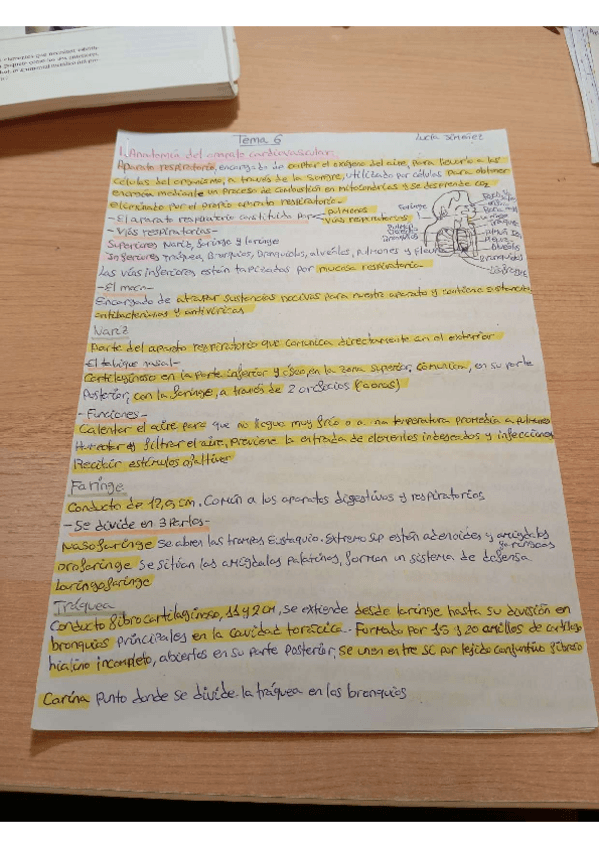 Tema 6
Lucía Jiménez
1. Anatomía del aparato cardiovascular:
Aparato respiratorio, encargado de captar el oxígeno del aire, para llevarlo a las
células del organismo, a través de la sangre, utilizado por células para obtener
energía mediante un proceso de combustión en mitocondrias y se desprende CO2
eliminado por el propio aparato respiratorio-
-El aparato respiratorio constituido por- pulmones
vías respiratorias-
-Vías respiratorias-
Superiores Nariz, faringe y laringe
Inferiores Tráquea, Bronquios, Bronquiolos, alveólos, Pulmones y
Las vías inferiores están tapizadas por mucosa respiratoria-
-El moco-
Encargado de atrapar sustancias nocivas para nuestro aparato y contiene sustancias
antibacterianas y antivíricas
Nariz
Parte del aparato respiratorio que comunica directamente en el exterior
-El tabique nasal-
Cartilaginoso en la parte inferior y óseo, en la zona superior, comunica, en su parte
Posterior, con la faringe, a través de 2 orificios (coanas)
-Funciones-
Calentar el aire para que no llegue muy frío o a una temperatura promedia a pulmones
y filtrar el aire, Previene la entrada de elementos indeseados y infecciones
Recibir estímulos olfativos
Faringe
Conducto de 12,5 cm. Común a los aparatos digestivos y respiratorios
-Se divide en 3 Partes-
Nasofaringe Se abren las trompas Eustaquio. Extremo sup están adenoides y amígdalas
faríngeas
Orofaringe Se sitúan las amígdalas Palatinas, forman un sistema de defensa
Laringofaringe
Tráquea
Conducto fibrocartilaginoso, 11 y 2 cm, se extiende desde laringe hasta su división en
bronquios principales en la cavidad torácica- Formado por 15 y 20 anillos de cartílago
hialino incompleto, abiertos en su parte Posterior, se unen entre sí por tejido conjuntivo fibroso
Carina Punto donde se divide la tráquea en los bronquios